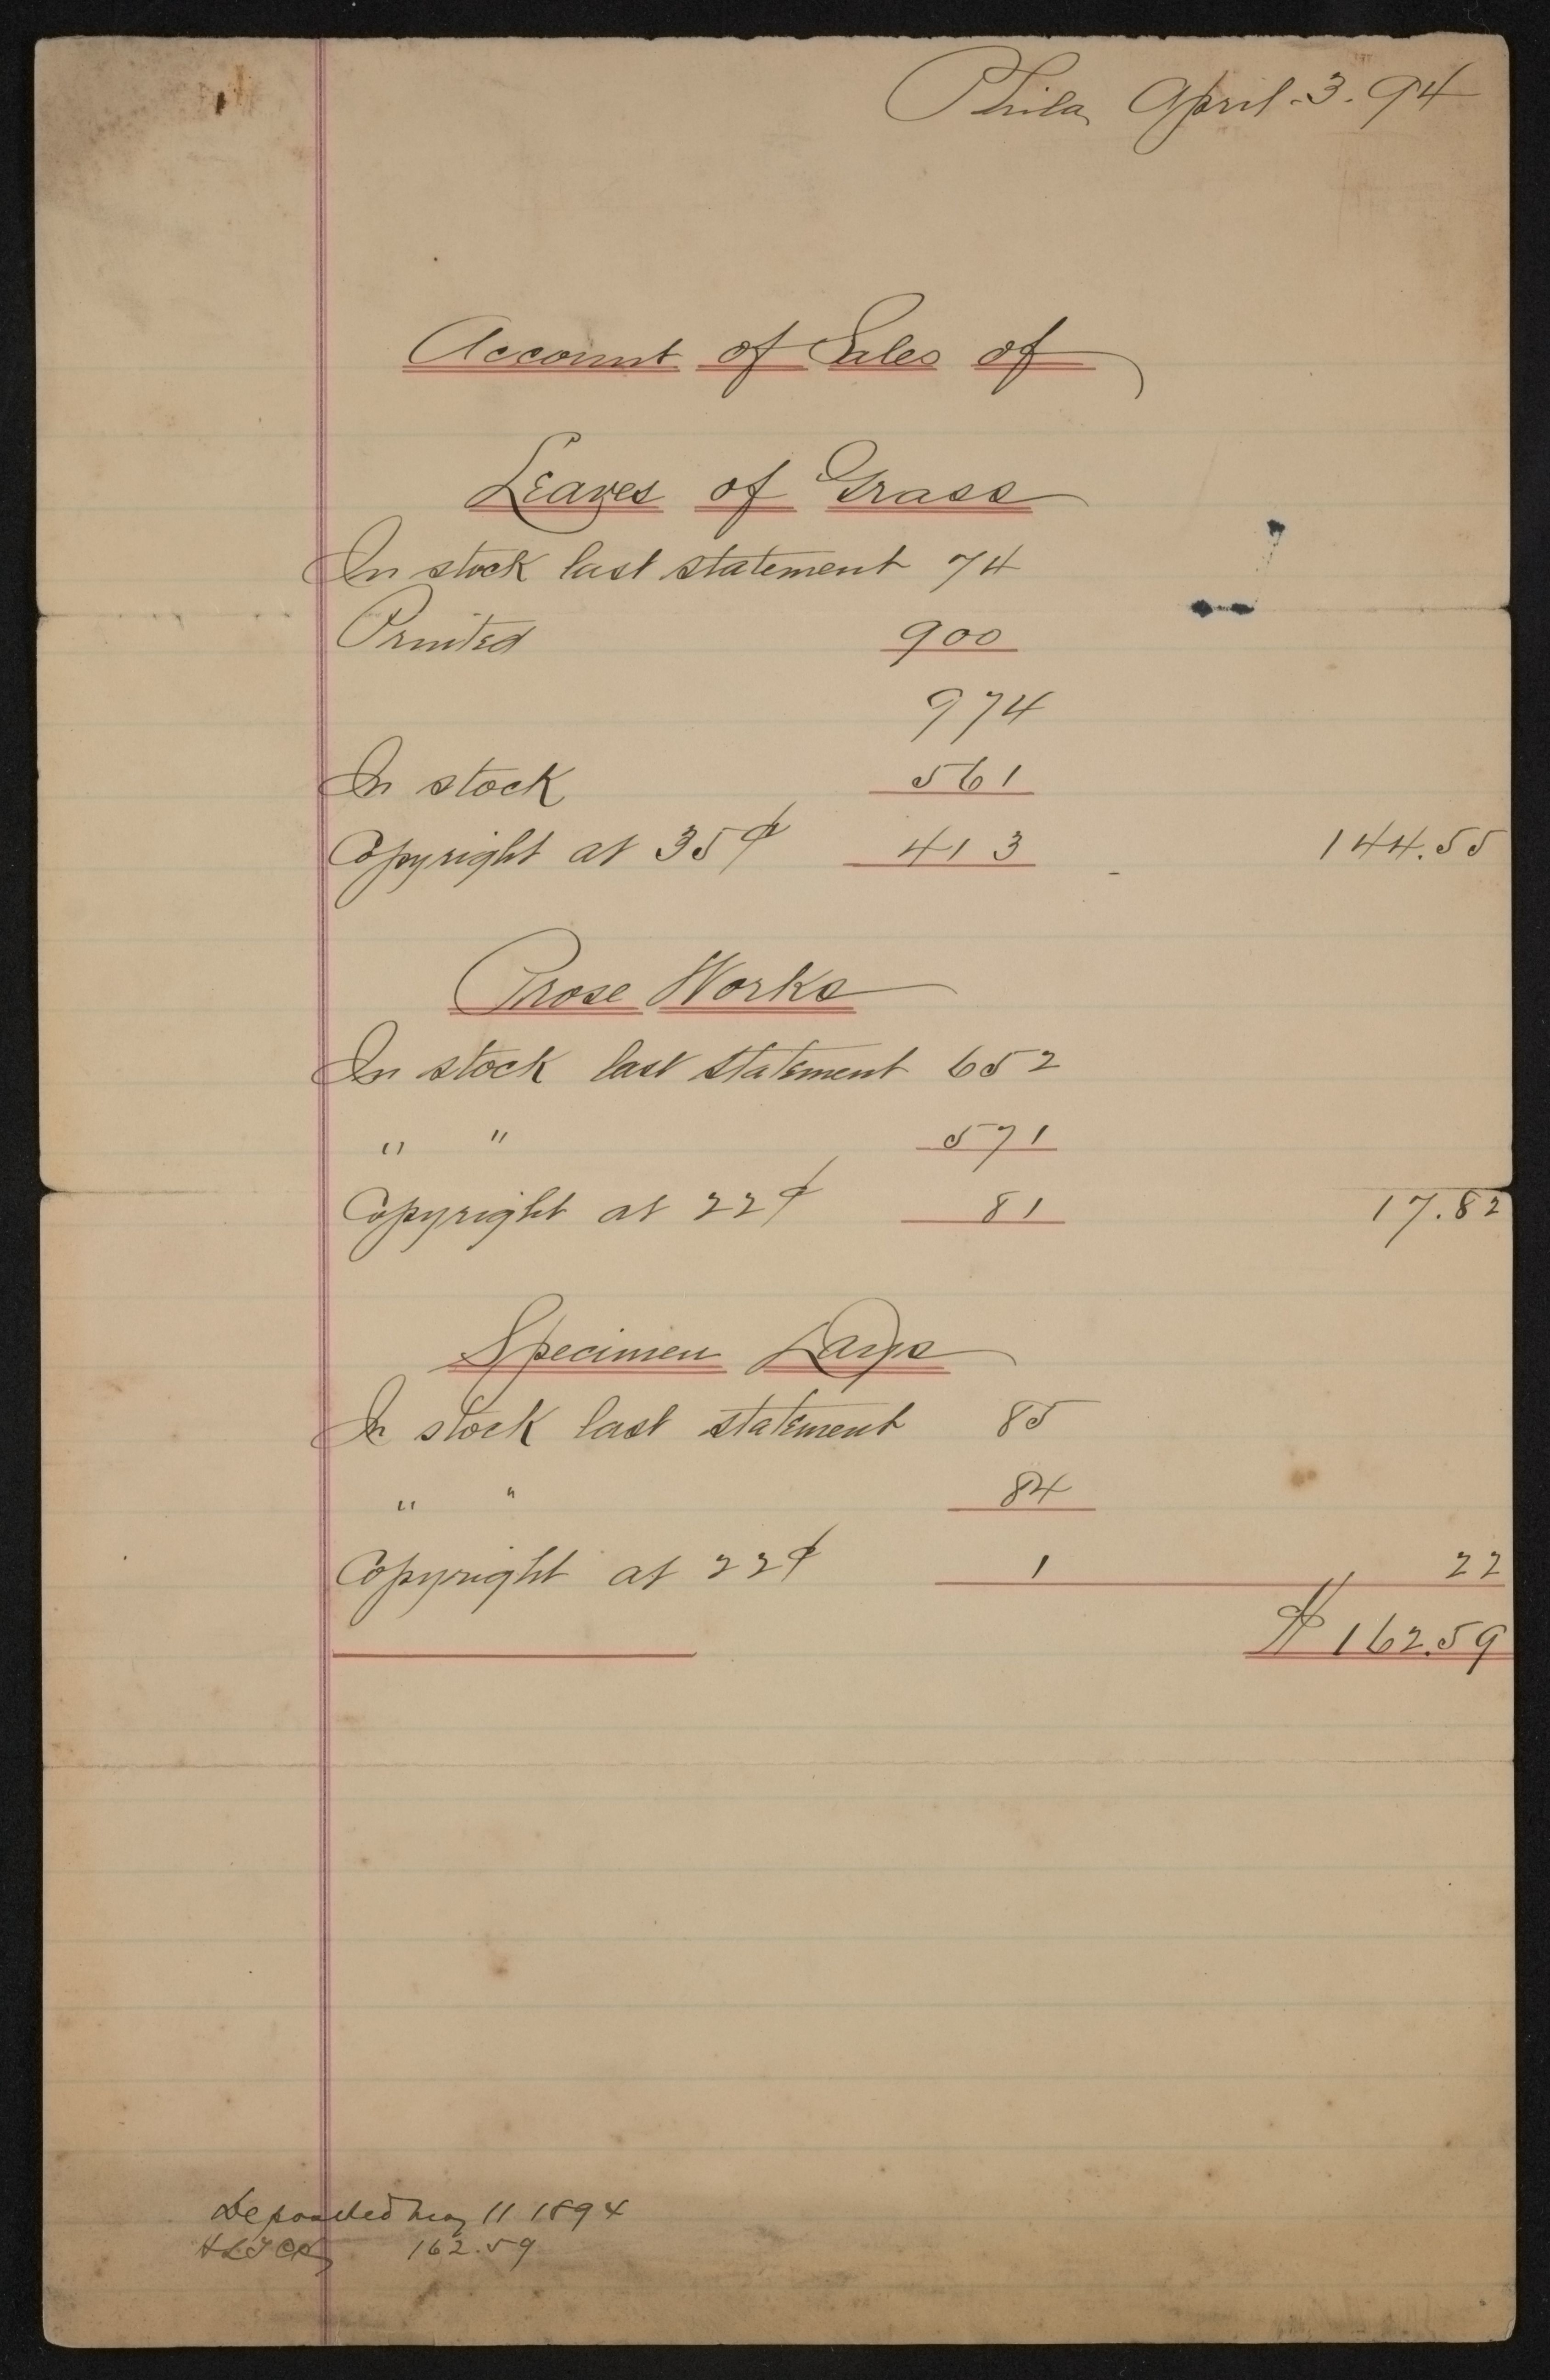 Phila, April. 3. 94
Account of Sales of
Leaves of Grass
In stock last statement 74
Printed 900
974
In stock 561
Copyright at 35¢ 413 144.55
Prose Works
In stock last statement 652
" " 571
Copyright at 22¢ 81 17.82
Specimen Days
In stock last statement 85
" " 84
Copyright at 22¢ 1 22
$162.59
Deposited May 11 1894
162.59